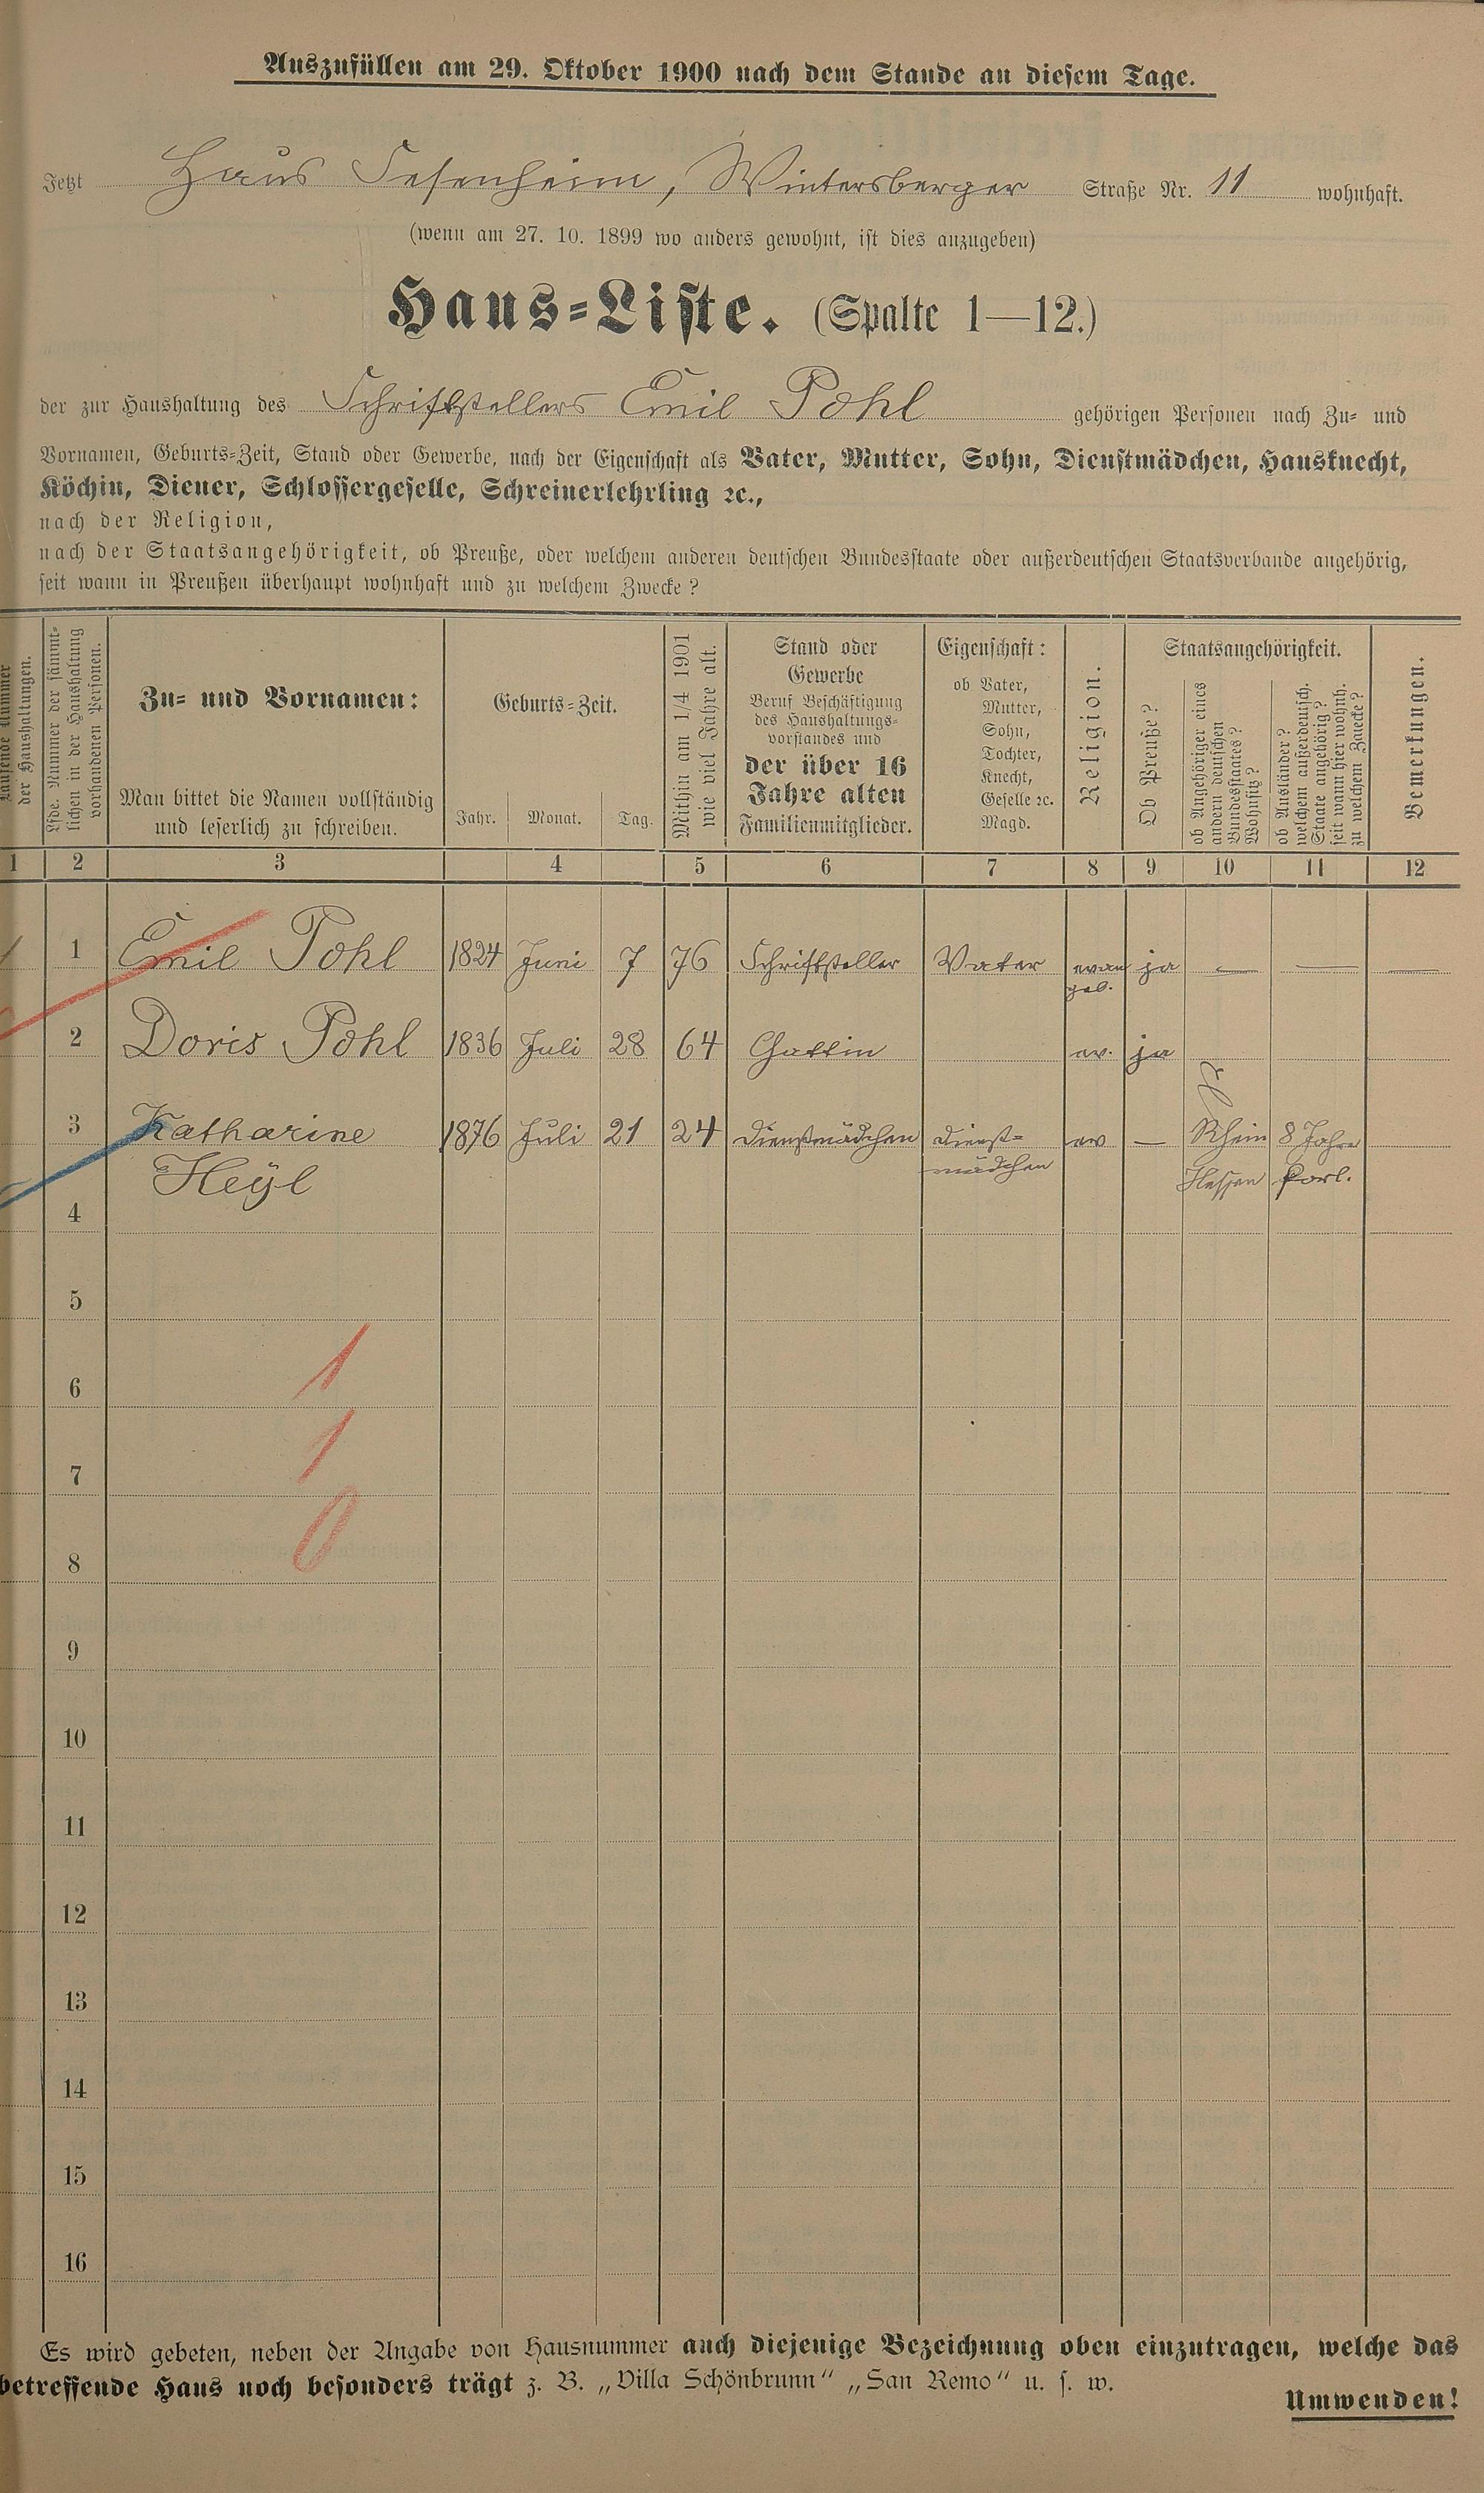 Auszufüllen am 29. Oktober 1900 nach dem Stande an diesem Tage.
Jetzt Haus Sesenheim, Wintersberger Straße Nr. 11 wohnhaft.
(wenn am 27. 10. 1899 wo anders gewohnt, ist dies anzugeben)
Haus-Liste. (Spalte 1—12.)
der zur Haushaltung des Schriftstellers Emil Pohl gehörigen Personen nach Zu- und
Vornamen, Geburts-Zeit, Stand oder Gewerbe, nach der Eigenschaft als Vater, Mutter, Sohn, Dienstmädchen, Hausknecht,
Köchin, Diener, Schlossergeselle, Schreinerlehrling ꝛc.,
nach der Religion,
nach der Staatsangehörigkeit, ob Preuße, oder welchem anderen deutschen Bundesstaate oder außerdeutschen Staatsverbande angehörig,
seit wann in Preußen überhaupt wohnhaft und zu welchem Zwecke?
Laufende Nummer
der Haushaltungen.
Lfde. Nummer der sämmt-
lichen in der Haushaltung
vorhandenen Personen.
Zu- und Vornamen:
Man bittet die Namen vollständig
und leserlich zu schreiben.
Geburts-Zeit.
Jahr. Monat. Tag.
Mithin am 1/4 1901
wie viel Jahre alt.
Stand oder
Gewerbe
Beruf Beschäftigung
des Haushaltungs-
vorstandes und
der über 16
Jahre alten
Familienmitglieder.
Eigenschaft:
ob Vater,
Mutter,
Sohn,
Tochter,
Knecht,
Geselle ꝛc.
Magd.
Religion.
Staatsangehörigkeit.
Ob Preuße?
ob Angehöriger eines
andern deutschen
Bundesstaates?
Wohnsitz?
ob Ausländer?
welchem außerdeutsch.
Staate angehörig?
seit wann hier wohnh.
zu welchem Zwecke?
Bemerkungen.
1 2 3 4 5 6 7 8 9 10 11 12
1 Emil Pohl 1824 Juni 7 76 Schriftsteller Vater evan ja — — —
gel.
2 Doris Pohl 1836 Juli 28 64 Gattin ev. ja
3 Katharine 1876 Juli 21 24 Dienstmädchen Dienst= ev — Rhein 8 Jahre
Heÿl mädchen Hessen
4
5
6
1
7
1
8
0
9
10
11
12
13
14
15
16
Es wird gebeten, neben der Angabe von Hausnummer auch diejenige Bezeichnung oben einzutragen, welche das
betreffende Haus noch besonders trägt z. B. „Villa Schönbrunn" „San Remo" u. s. w.
Umwenden!